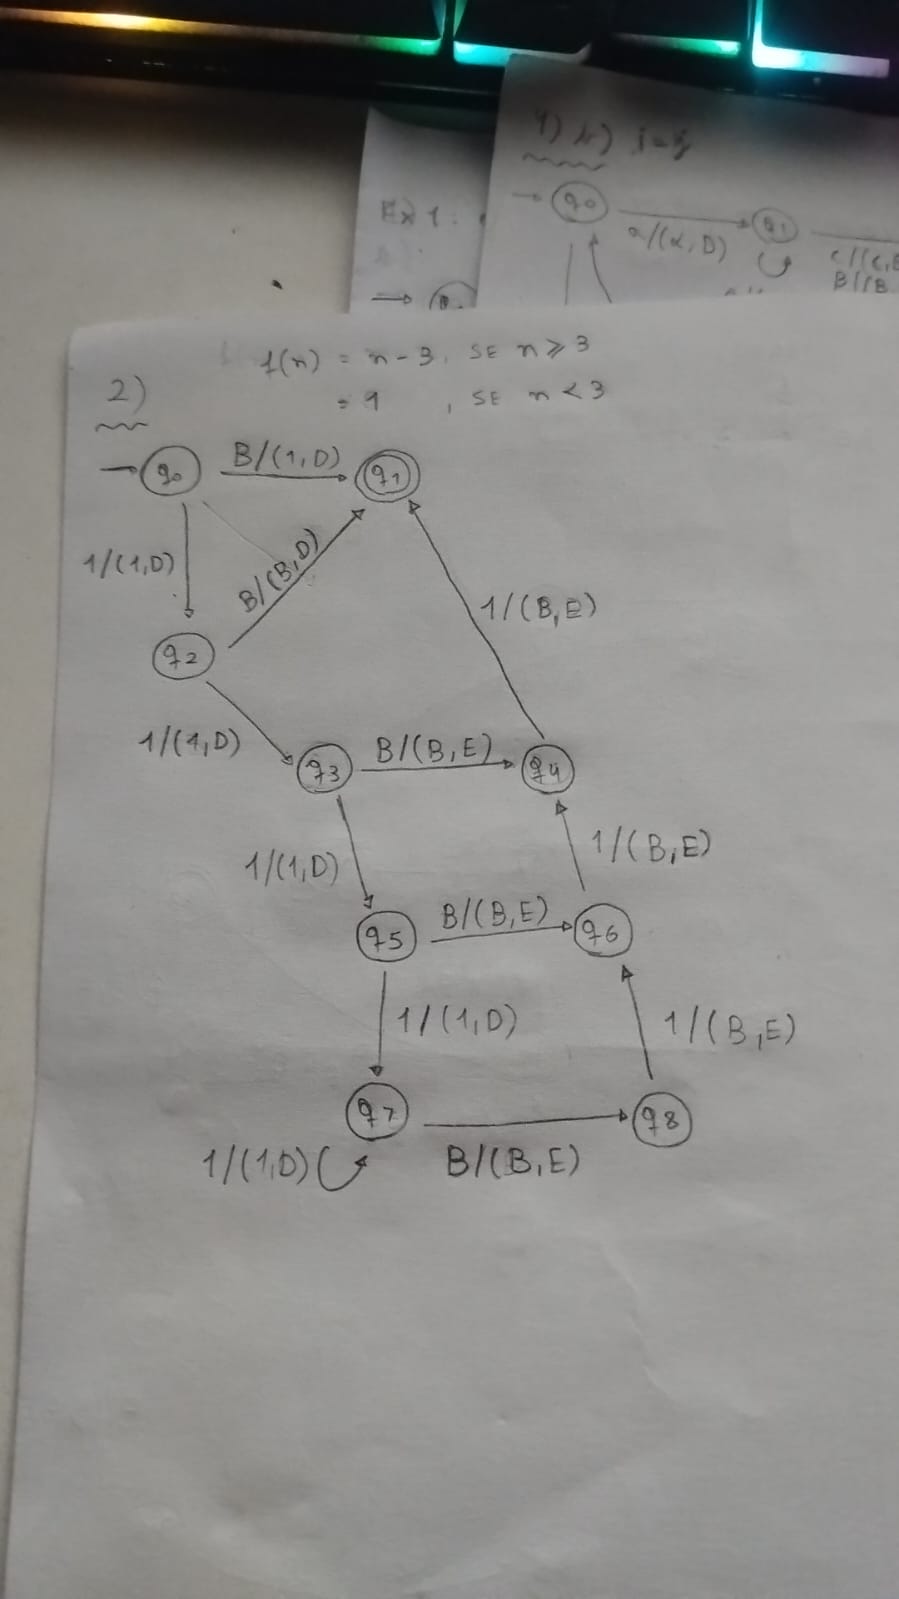 1) b) i=j
q0
q1
a/(α,D)
Ex 1:
f(n) = n-3, SE n ⩾ 3
2)
= 1 , SE n < 3
q0
B/(1,D)
q1
1/(1,D)
B/(B,D)
1/(B,E)
q2
1/(1,D)
q3
B/(B,E)
q4
1/(1,D)
1/(B,E)
q5
B/(B,E)
q6
1/(1,D)
1/(B,E)
q7
q8
1/(1,D)
B/(B,E)